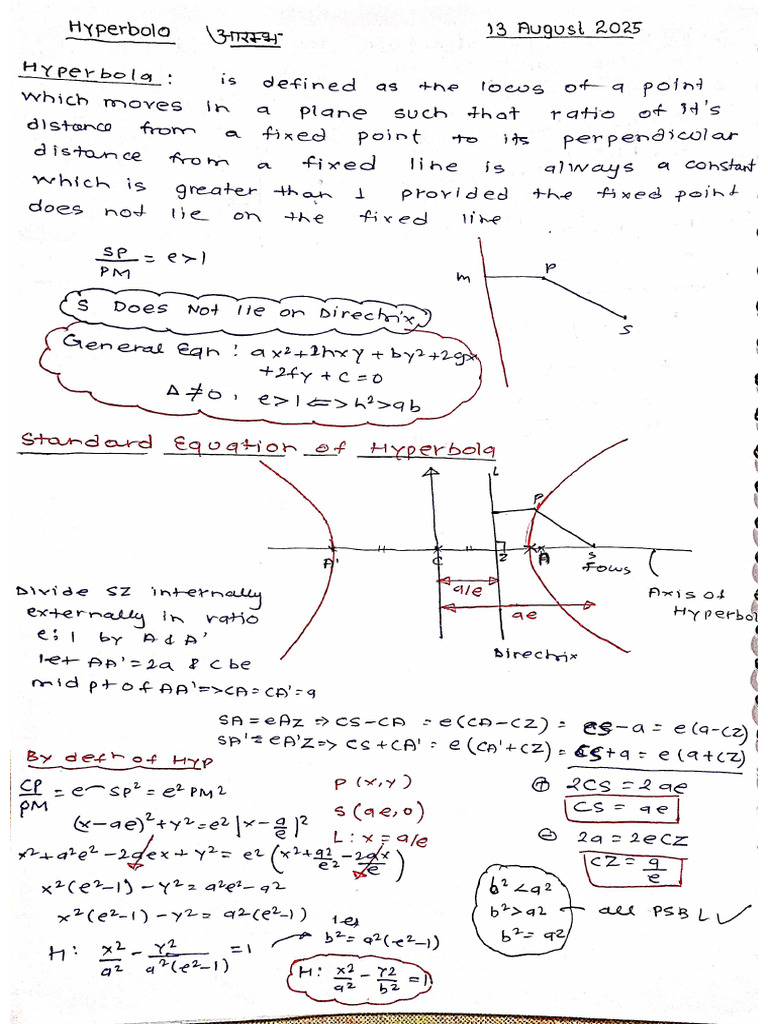 Hyperbolo आरम्भ 13 August 2025
Hyperbola : is defined as the locus of a point
which moves in a plane such that ratio of it's
distance from a fixed point to its perpendicular
distance from a fixed line is always a constant
which is greater than 1 provided the fixed point
does not lie on the fixed line
SP/PM = e>1
m P S
S Does Not lie on Directrix
General Eqn : ax²+2hxy+by²+2gx
+2fy+c=0
Δ≠0, e>1 <=> h²>ab
Standard Equation of Hyperbola
L
P
A' C Z A S
focus
a/e
ae
Axis of
Hyperbol
Directrix
Divide SZ internally
externally in ratio
e:1 by A & A'
let AA'=2a & C be
mid pt of AA' => CA=CA'=a
SA=eAZ => CS-CA = e(CA-CZ) = cs-a = e(a-CZ)
SA'=eA'Z => CS+CA' = e(CA'+CZ) = CS+a = e(a+CZ)
By defn of Hyp
CP/PM = e SP²=e²PM²
P(x,y)
S(ae,0)
L: x=a/e
⊕ 2CS=2ae
CS = ae
⊖ 2a=2eCZ
CZ = a/e
(x-ae)²+y²=e²|x-a/e|²
x²+a²e²-2aex+y²=e²(x²+a²/e²-2ax/e)
x²(e²-1)-y²=a²e²-a²
x²(e²-1)-y²=a²(e²-1)
H: x²/a² - y²/a²(e²-1) =1
let
b²=a²(e²-1)
H: x²/a² - y²/b² =1
b²<a²
b²>a² all PSBL ✓
b²=a²